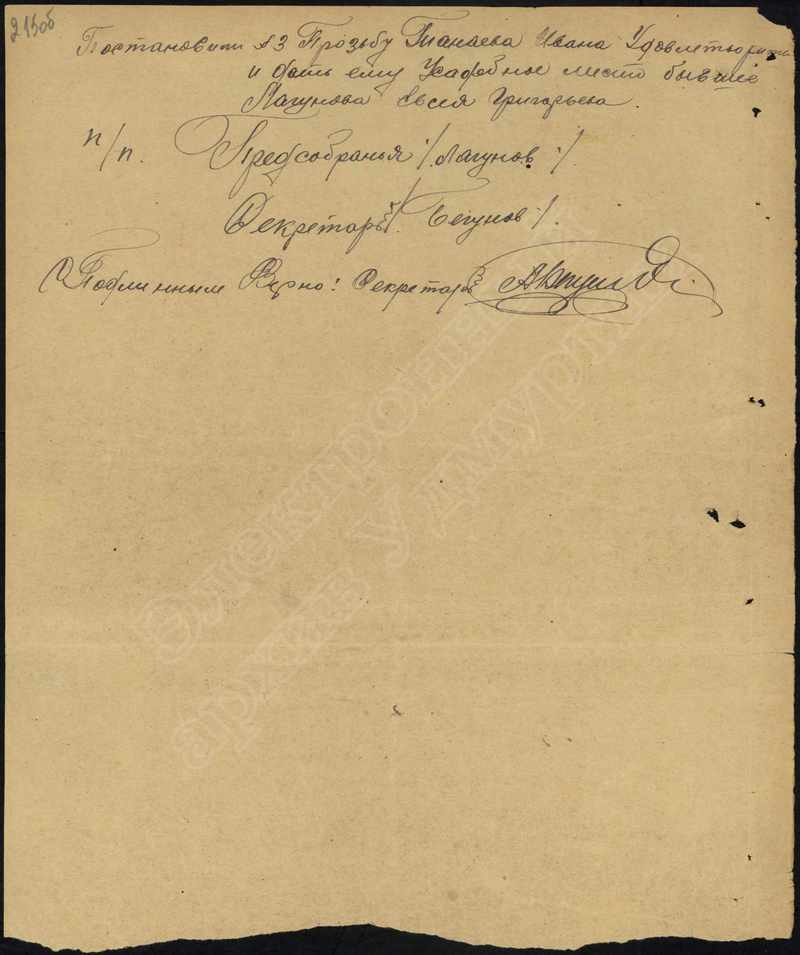 215об
Постановили §3 Прозьбу Танаева Ивана Удовлетворить
и дать ему Усадебное место бывшие
Лагунова Евсея Григорьева.
п/п. Предсобранья /Лагунов/.
Секретарь /Бегунов/.
С Подлинным Верно: Секретарь
Электронный
архив Удмуртии